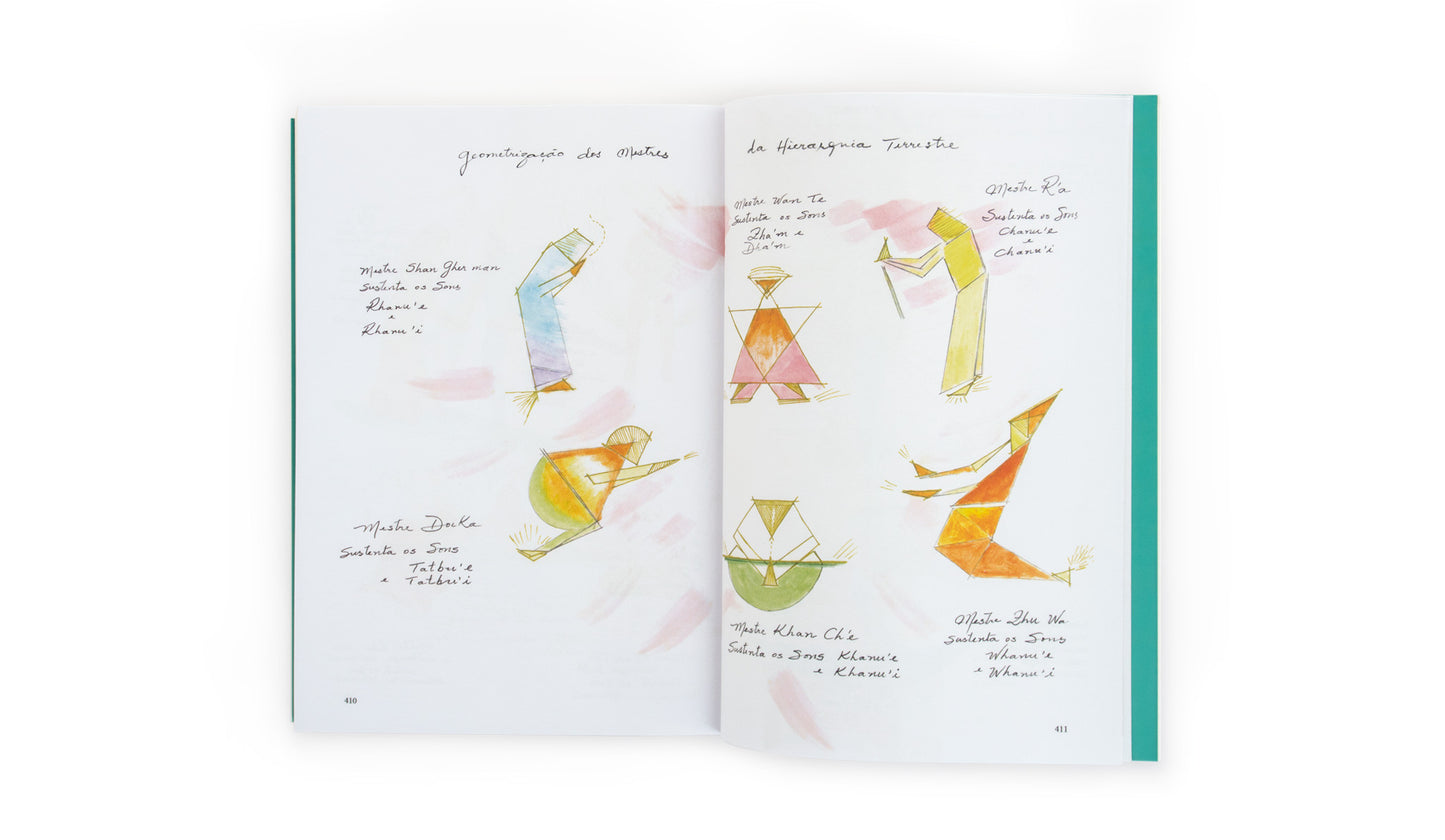 geometrização dos Mestres
Mestre Shan Gher man
Sustenta os Sons
Rhanu'e
e
Rhanu'i
Mestre Docka
Sustenta os Sons
Tatbu'e
e Tatbu'i
410
da Hierarquia Terrestre
Mestre Wan Te
Sustenta os Sons
Zha'm e
Dha'm
Mestre R'a
Sustenta os Sons
Chanu'e
e
Chanu'i
Mestre Khan Ch'e
Sustenta os Sons Khanu'e
e Khanu'i
Mestre Zhu Wa
Sustenta os Sons
Whanu'e
e Whanu'i
411